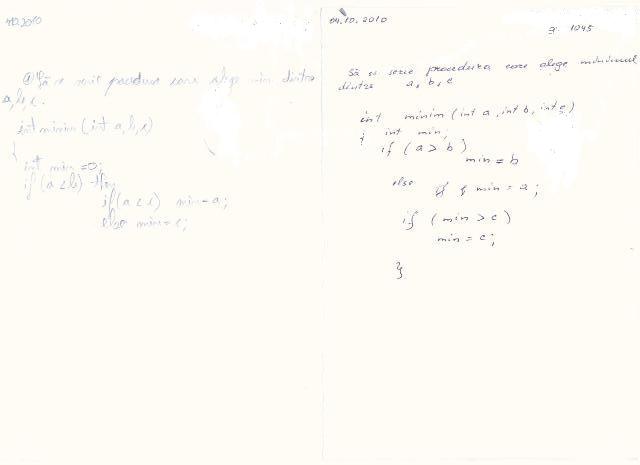 10.2010
① Să se scrie procedura care alege min dintre
a,b,c.
int minim (int a,b,c)
{
int min =0;
if (a<b) then
if(a<c) min=a;
else min=c;
04.10.2010
gr. 1045
Să se scrie procedura care alege minimul
dintre a, b, c
int minim (int a, int b, int c)
{ int min;
if (a > b)
min = b
else min = a;
if (min > c)
min = c;
}